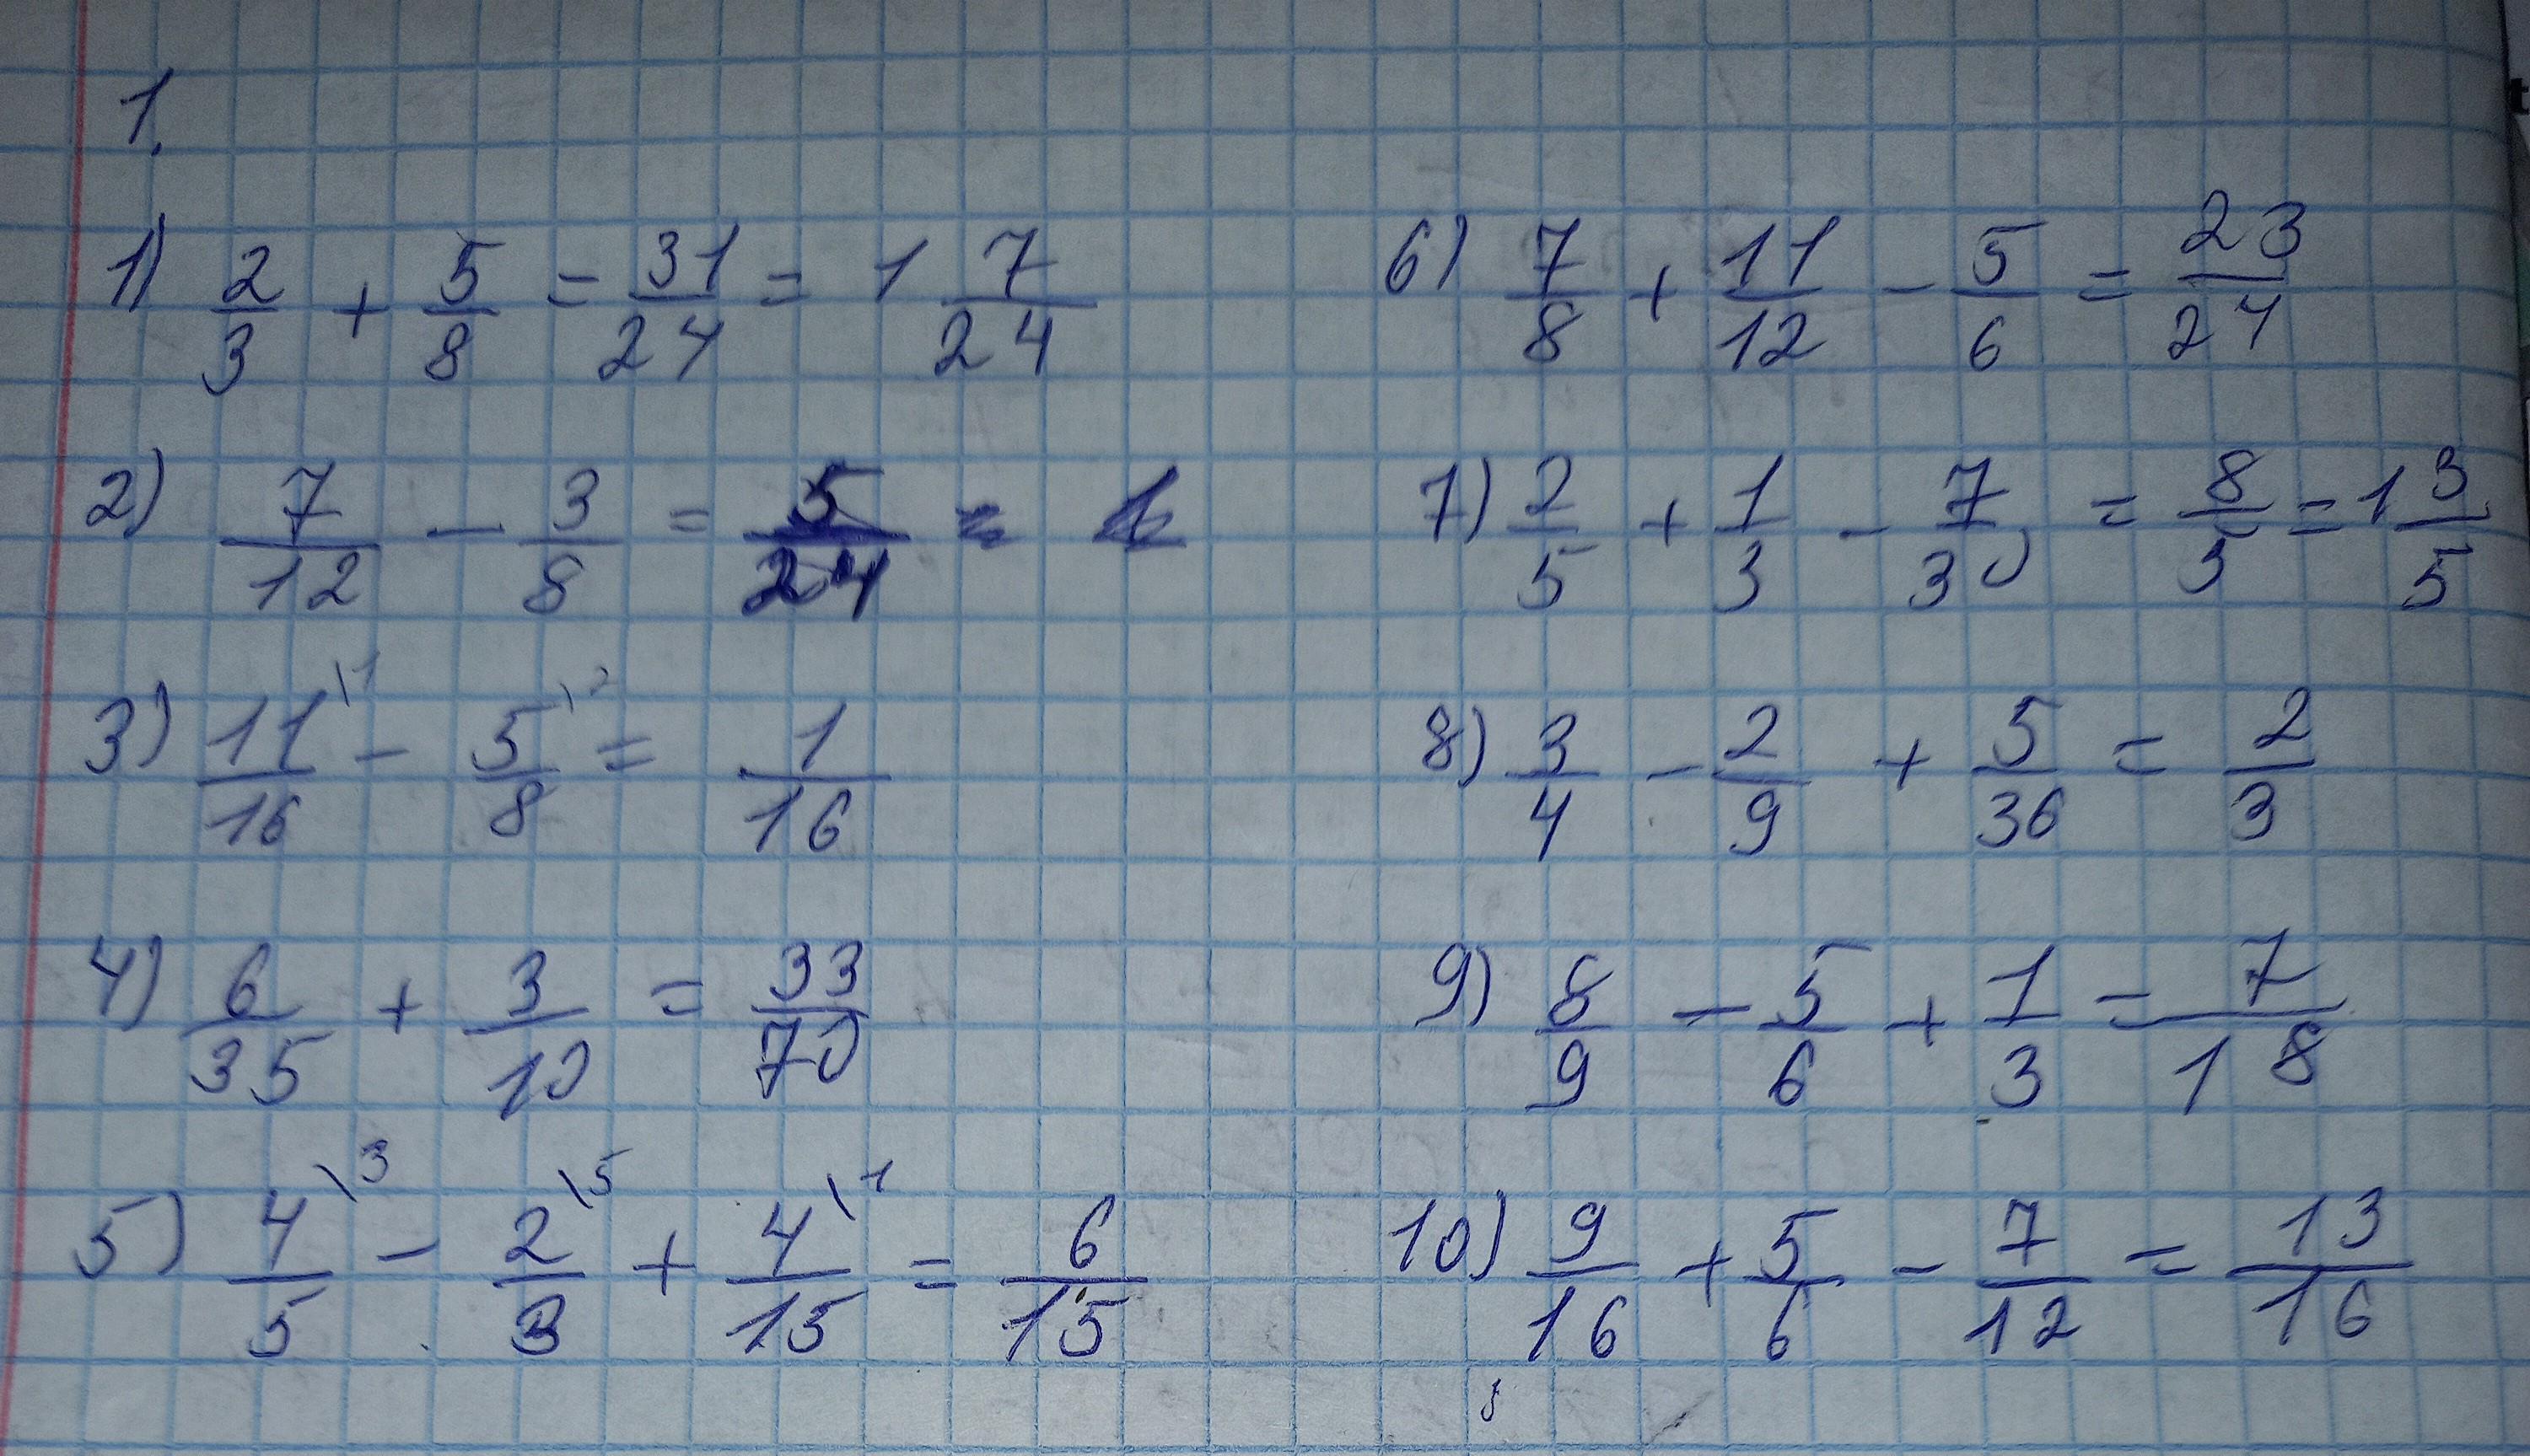 1.
1) 2/3 + 5/8 = 31/24 = 1 7/24
2) 7/12 - 3/8 = 5/24
3) 11/16 \1 - 5/8 \2 = 1/16
4) 6/35 + 3/10 = 33/70
5) 4/5 \3 - 2/3 \5 + 4/15 \1 = 6/15
6) 7/8 + 11/12 - 5/6 = 23/24
7) 2/5 + 1/3 - 7/30 = 8/5 = 1 3/5
8) 3/4 - 2/9 + 5/36 = 2/3
9) 8/9 - 5/6 + 1/3 = 7/18
10) 9/16 + 5/6 - 7/12 = 13/16